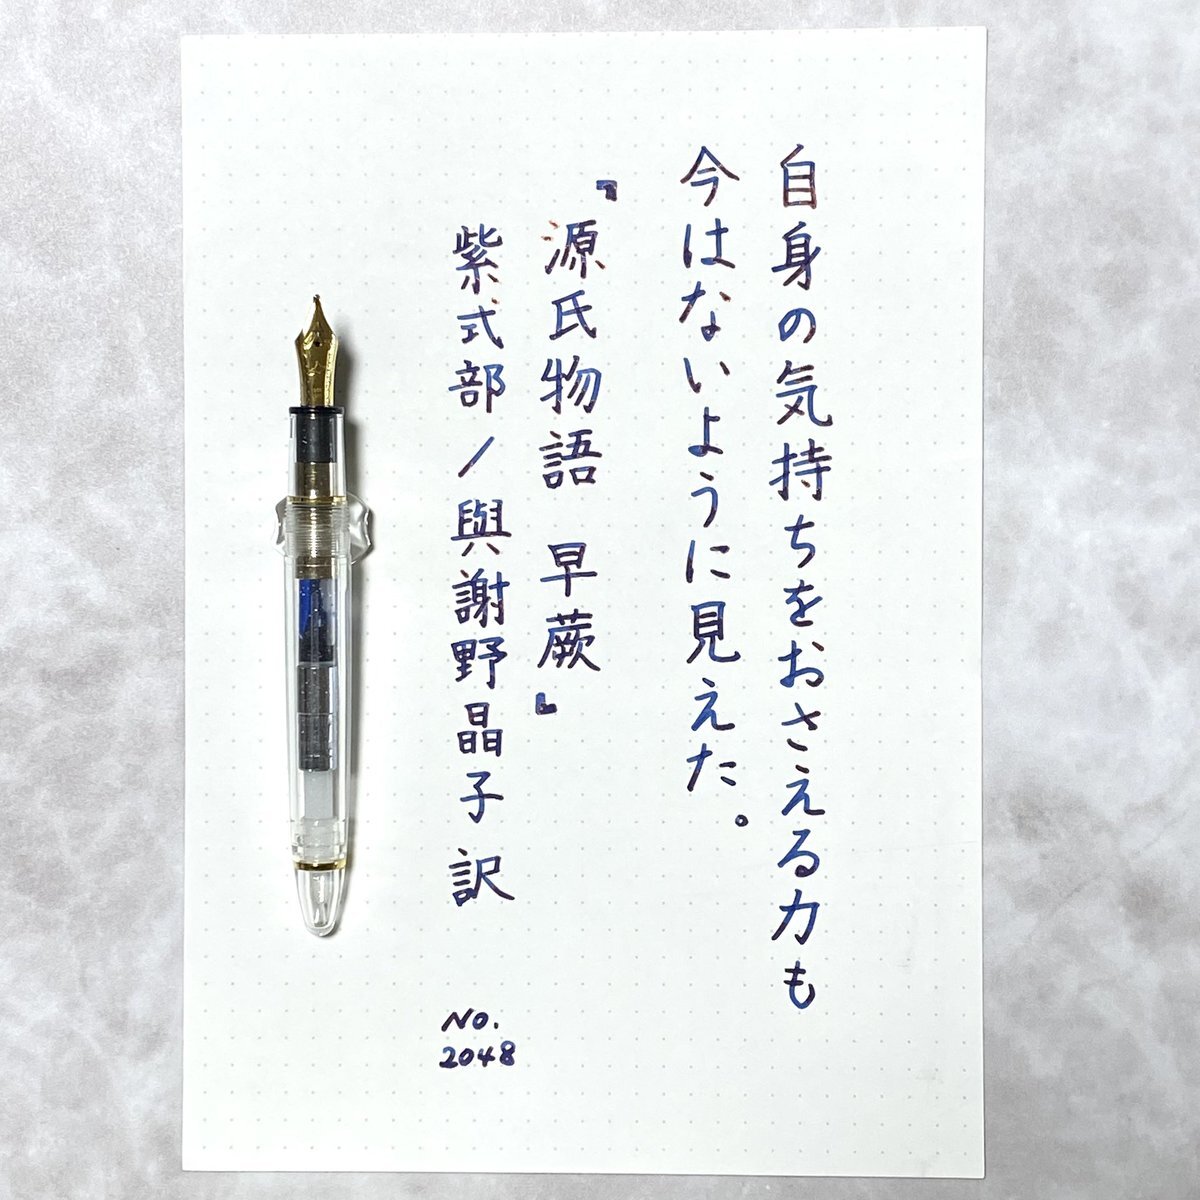 自身の気持ちをおさえる力も
今はないように見えた。
『源氏物語 早蕨』
紫式部/與謝野晶子 訳
No.
2048